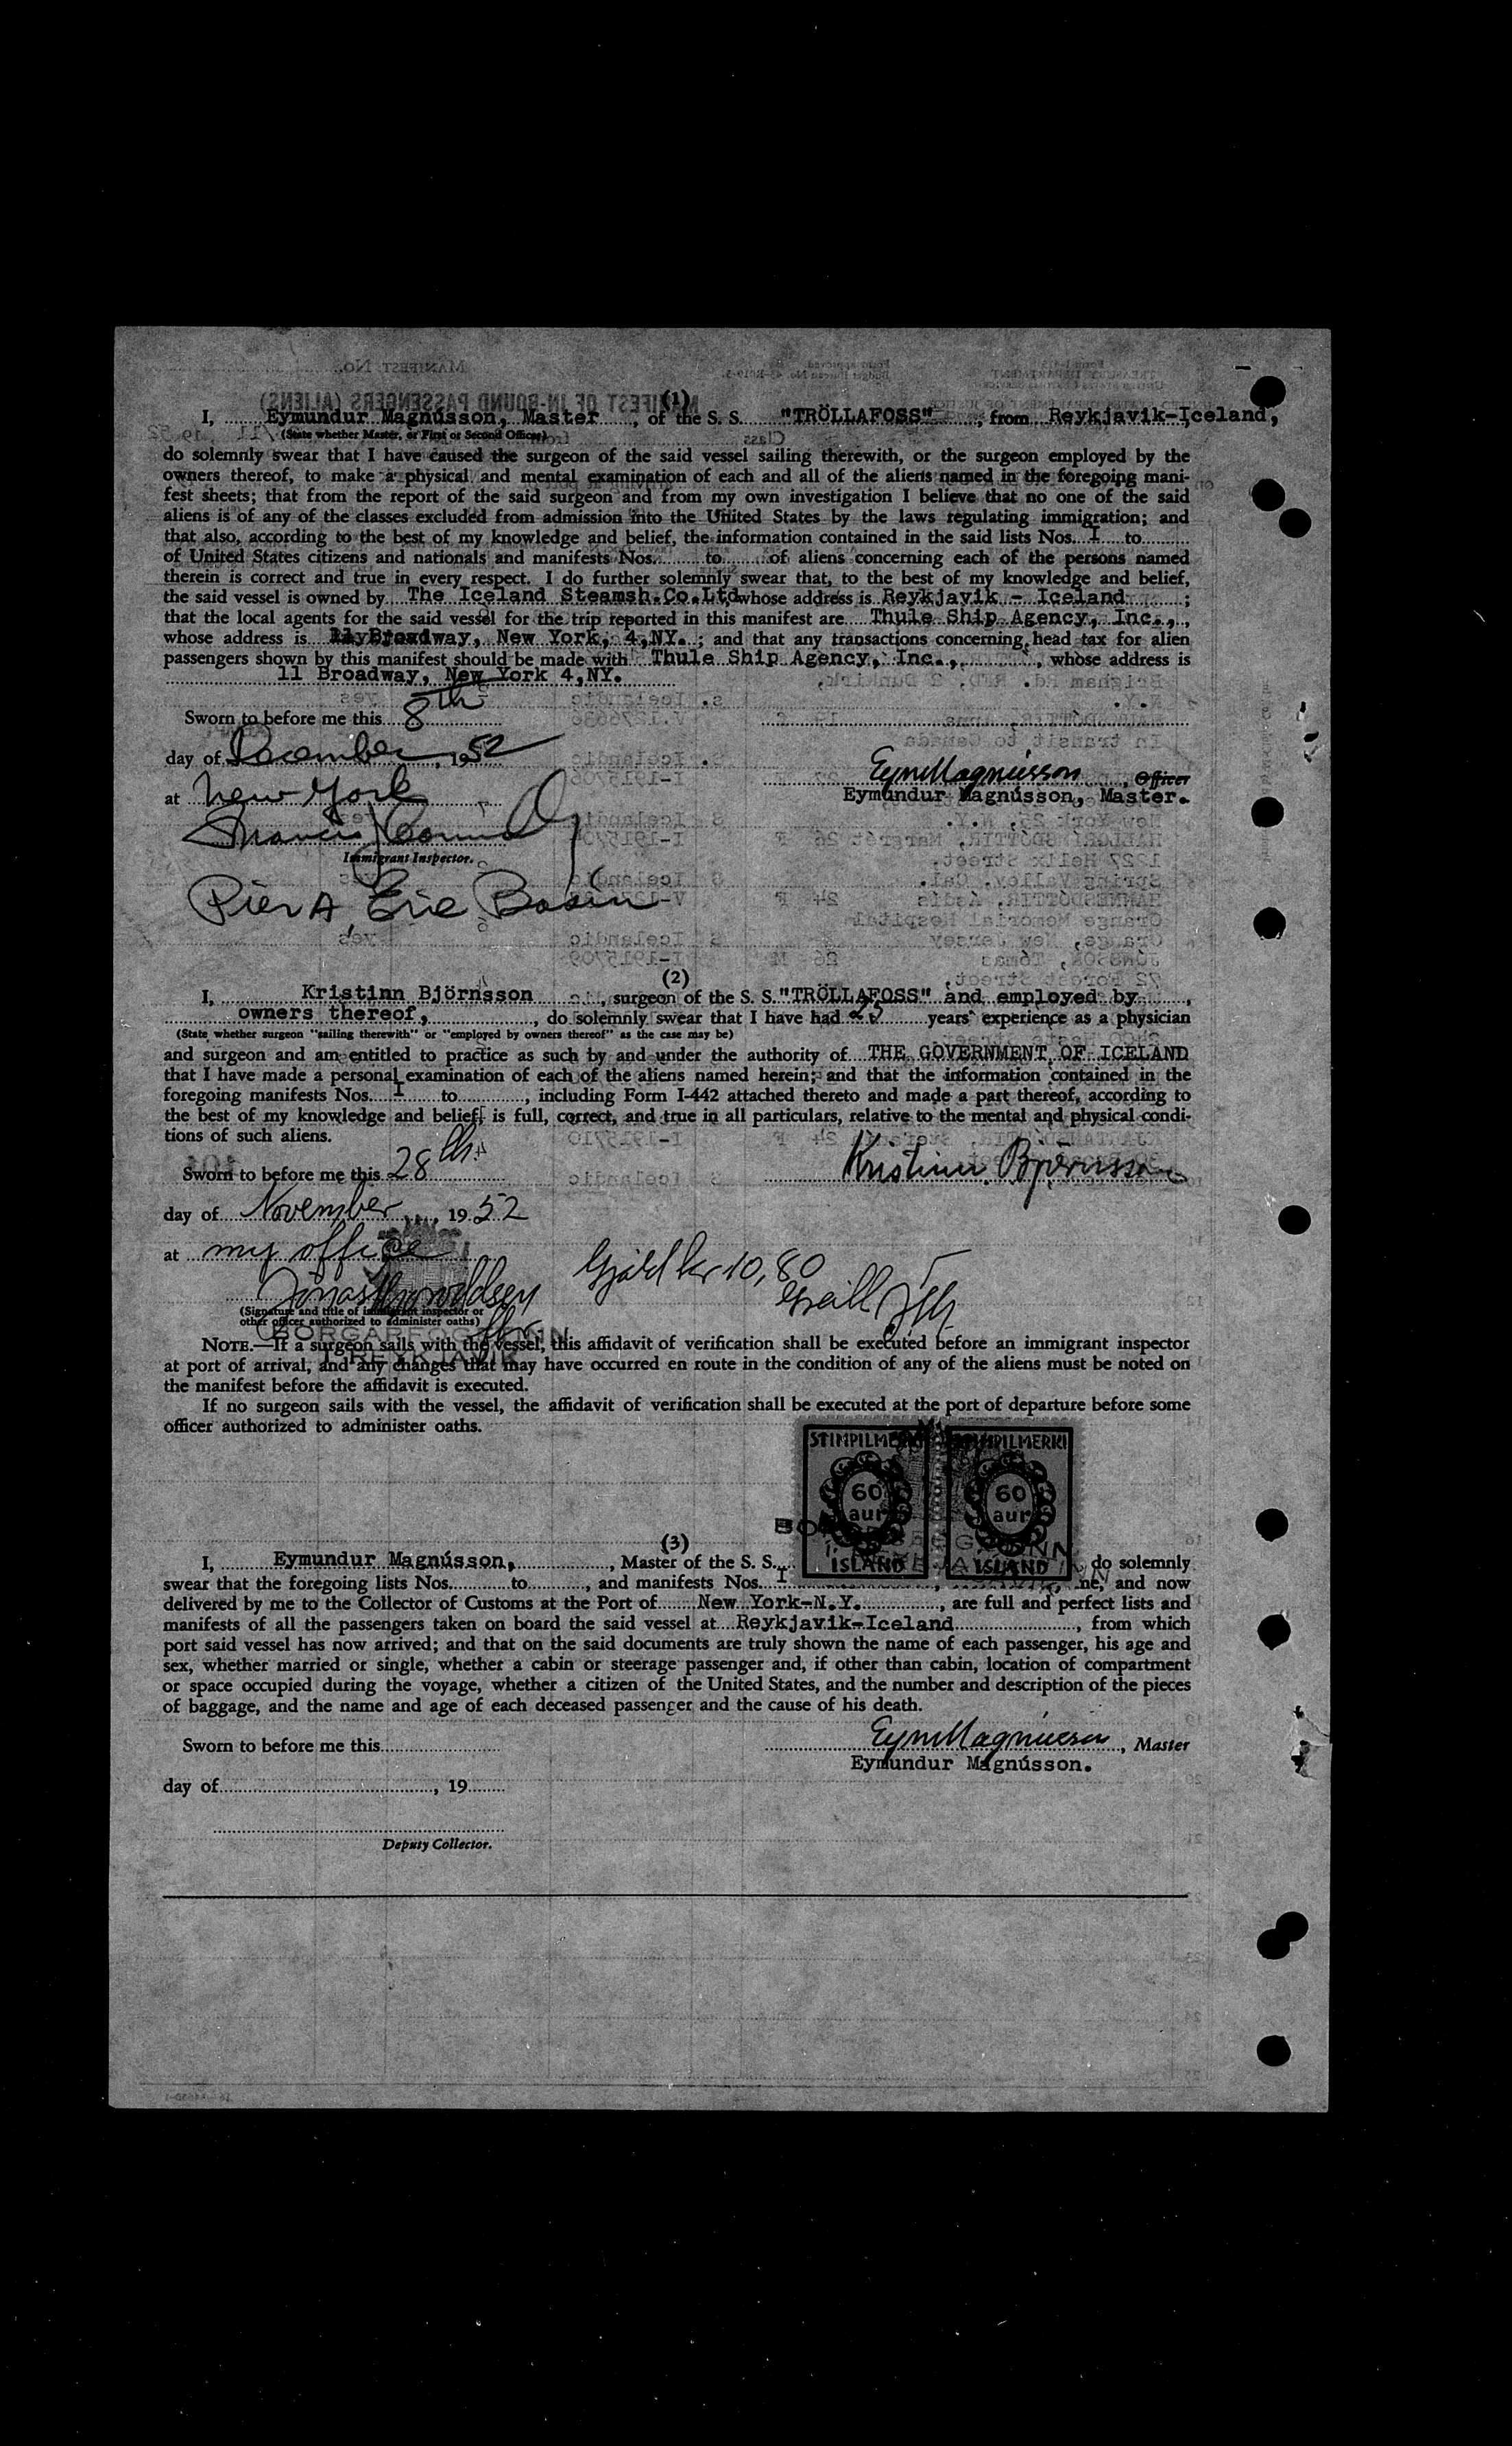 (1)
I, Eymundur Magnússon, Master, of the S. S. "TRÖLLAFOSS", from Reykjavik-Iceland,
(State whether Master, or First or Second Officer)
do solemnly swear that I have caused the surgeon of the said vessel sailing therewith, or the surgeon employed by the
owners thereof, to make a physical and mental examination of each and all of the aliens named in the foregoing mani-
fest sheets; that from the report of the said surgeon and from my own investigation I believe that no one of the said
aliens is of any of the classes excluded from admission into the United States by the laws regulating immigration; and
that also, according to the best of my knowledge and belief, the information contained in the said lists Nos. I to
of United States citizens and nationals and manifests Nos. to of aliens concerning each of the persons named
therein is correct and true in every respect. I do further solemnly swear that, to the best of my knowledge and belief,
the said vessel is owned by The Iceland Steamsh.Co.Ltd, whose address is Reykjavik - Iceland ;
that the local agents for the said vessel for the trip reported in this manifest are Thule Ship Agency, Inc.,
whose address is Broadway, New York, 4,NY. ; and that any transactions concerning head tax for alien
passengers shown by this manifest should be made with Thule Ship Agency, Inc., , whose address is
11 Broadway, New York 4,NY.
Sworn to before me this 8th
day of December, 1952
EymMagnússon, Officer
Eymundur Magnússon, Master.
at New York
Immigrant Inspector.
Pier A, Erie Basin
(2)
I, Kristinn Björnsson, surgeon of the S. S. "TRÖLLAFOSS" and employed by ,
owners thereof, , do solemnly swear that I have had 25 years' experience as a physician
(State whether surgeon "sailing therewith" or "employed by owners thereof" as the case may be)
and surgeon and am entitled to practice as such by and under the authority of THE GOVERNMENT OF ICELAND
that I have made a personal examination of each of the aliens named herein; and that the information contained in the
foregoing manifests Nos. I to , including Form I-442 attached thereto and made a part thereof, according to
the best of my knowledge and belief, is full, correct, and true in all particulars, relative to the mental and physical condi-
tions of such aliens.
Sworn to before me this 28th.
Kristinn Björnsson
day of November, 1952
at my office
Gjald kr 10,80
Jónas Thoroddsen
Greitt
(Signature and title of immigrant inspector or
other officer authorized to administer oaths)
BORGARFÓGETINN
Í REYKJAVÍK
NOTE.—If a surgeon sails with the vessel, this affidavit of verification shall be executed before an immigrant inspector
at port of arrival, and any changes that may have occurred en route in the condition of any of the aliens must be noted on
the manifest before the affidavit is executed.
If no surgeon sails with the vessel, the affidavit of verification shall be executed at the port of departure before some
officer authorized to administer oaths.
STIMPILMERKI STIMPILMERKI
60 60
aur aur
ISLAND ISLAND
(3)
I, Eymundur Magnússon, , Master of the S. S. do solemnly
swear that the foregoing lists Nos. to , and manifests Nos. I , me, and now
delivered by me to the Collector of Customs at the Port of New York-N.Y. , are full and perfect lists and
manifests of all the passengers taken on board the said vessel at Reykjavik-Iceland , from which
port said vessel has now arrived; and that on the said documents are truly shown the name of each passenger, his age and
sex, whether married or single, whether a cabin or steerage passenger and, if other than cabin, location of compartment
or space occupied during the voyage, whether a citizen of the United States, and the number and description of the pieces
of baggage, and the name and age of each deceased passenger and the cause of his death.
Sworn to before me this
EymMagnússon, Master
Eymundur Magnússon.
day of , 19
Deputy Collector.